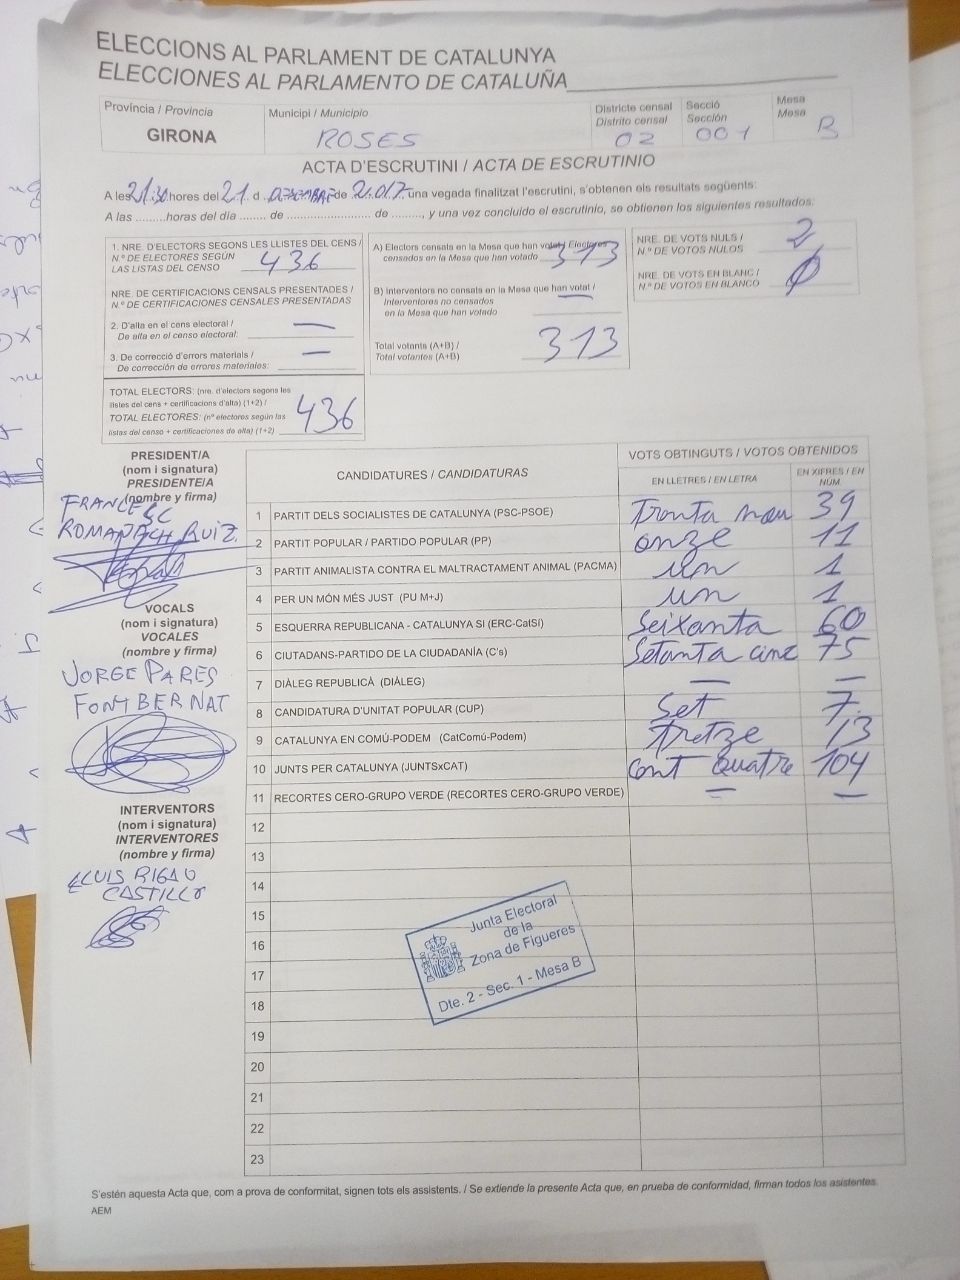 ELECCIONS AL PARLAMENT DE CATALUNYA
ELECCIONES AL PARLAMENTO DE CATALUÑA
Província / Provincia
GIRONA
Municipi / Municipio
ROSES
Districte censal
Distrito censal
02
Secció
Sección
001
Mesa
Mesa
B
ACTA D'ESCRUTINI / ACTA DE ESCRUTINIO
A les 21:30 hores del 21 d DESEMBRE de 2.017 una vegada finalitzat l'escrutini, s'obtenen els resultats següents:
A las .........horas del día ....... de ........................ de ........, y una vez concluido el escrutinio, se obtienen los siguientes resultados:
1. NRE. D'ELECTORS SEGONS LES LLISTES DEL CENS /
N.º DE ELECTORES SEGÚN
LAS LISTAS DEL CENSO 436
NRE. DE CERTIFICACIONS CENSALS PRESENTADES /
N.º DE CERTIFICACIONES CENSALES PRESENTADAS
2. D'alta en el cens electoral / —
De alta en el censo electoral:
3. De correcció d'errors materials / —
De corrección de errores materiales:
TOTAL ELECTORS: (nre. d'electors segons les
llistes del cens + certificacions d'alta) (1+2) /
TOTAL ELECTORES: (nº electores según las
listas del censo + certificaciones de alta) (1+2) 436
A) Electors censats en la Mesa que han votat / Electores
censados en la Mesa que han votado 313
B) Interventors no censats en la Mesa que han votat / —
Interventores no censados
en la Mesa que han votado
Total votants (A+B) /
Total votantes (A+B) 313
NRE. DE VOTS NULS /
N.º DE VOTOS NULOS 2
NRE. DE VOTS EN BLANC /
N.º DE VOTOS EN BLANCO Ø
PRESIDENT/A
(nom i signatura)
PRESIDENTE/A
(nombre y firma)
FRANCESC
ROMANACH RUIZ
VOCALS
(nom i signatura)
VOCALES
(nombre y firma)
JORGE PARES
FONTBERNAT
INTERVENTORS
(nom i signatura)
INTERVENTORES
(nombre y firma)
LLUIS RIGAU
CASTILLO
CANDIDATURES / CANDIDATURAS
VOTS OBTINGUTS / VOTOS OBTENIDOS
EN LLETRES / EN LETRA
EN XIFRES / EN
NÚM.
1 PARTIT DELS SOCIALISTES DE CATALUNYA (PSC-PSOE) Tronta nou 39
2 PARTIT POPULAR / PARTIDO POPULAR (PP) onze 11
3 PARTIT ANIMALISTA CONTRA EL MALTRACTAMENT ANIMAL (PACMA) un 1
4 PER UN MÓN MÉS JUST (PU M+J) un 1
5 ESQUERRA REPUBLICANA - CATALUNYA SI (ERC-CatSí) Seixanta 60
6 CIUTADANS-PARTIDO DE LA CIUDADANÍA (C's) Setanta cinc 75
7 DIÀLEG REPUBLICÀ (DIÀLEG) — —
8 CANDIDATURA D'UNITAT POPULAR (CUP) Set 7
9 CATALUNYA EN COMÚ-PODEM (CatComú-Podem) tretze 13
10 JUNTS PER CATALUNYA (JUNTSxCAT) Cent quatre 104
11 RECORTES CERO-GRUPO VERDE (RECORTES CERO-GRUPO VERDE) — —
12
13
14
15
16
17
18
19
20
21
22
23
Junta Electoral
de la
Zona de Figueres
Dte. 2 - Sec. 1 - Mesa B
S'estén aquesta Acta que, com a prova de conformitat, signen tots els assistents. / Se extiende la presente Acta que, en prueba de conformidad, firman todos los asistentes.
AEM